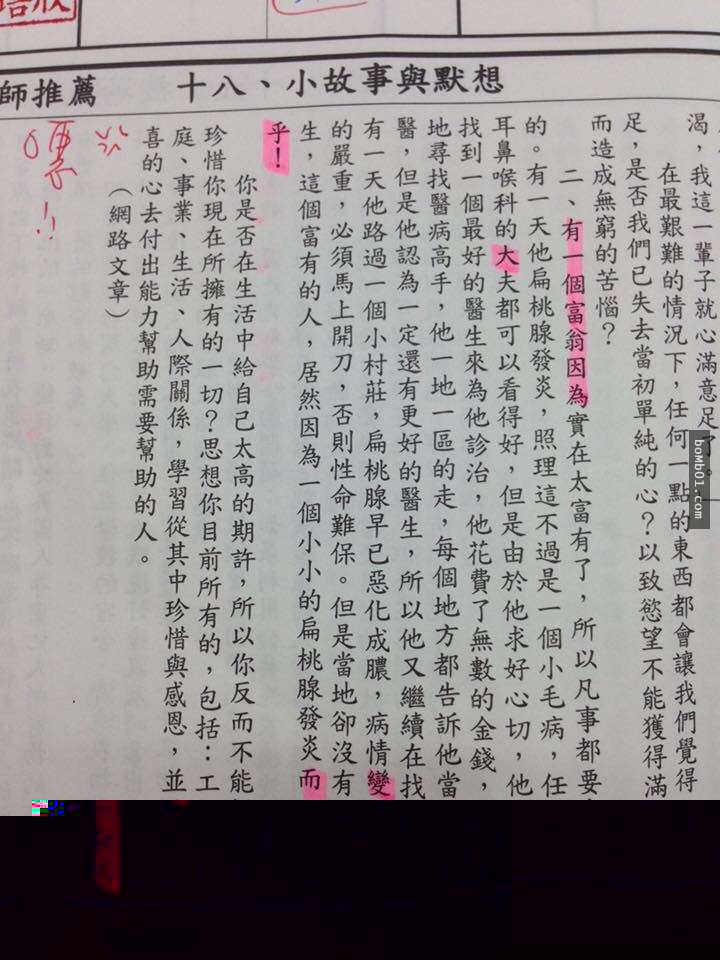 師推薦
十八、小故事與默想
渴,我這一輩子就心滿意足了。
在最艱難的情況下,任何一點的東西都會讓我們覺得
足,是否我們已失去當初單純的心?以致慾望不能獲得滿
而造成無窮的苦惱?
二、有一個富翁因為實在太富有了,所以凡事都要
的。有一天他扁桃腺發炎,照理這不過是一個小毛病,任
耳鼻喉科的大夫都可以看得好,但是由於他求好心切,他
找到一個最好的醫生來為他診治,他花費了無數的金錢,
地尋找醫病高手,他一地一區的走,每個地方都告訴他當
醫,但是他認為一定還有更好的醫生,所以他又繼續在找
有一天他路過一個小村莊,扁桃腺早已惡化成膿,病情變
的嚴重,必須馬上開刀,否則性命難保。但是當地卻沒有
生,這個富有的人,居然因為一個小小的扁桃腺發炎而
乎!
你是否在生活中給自己太高的期許,所以你反而不能
珍惜你現在所擁有的一切?思想你目前所有的,包括:工
庭、事業、生活、人際關係,學習從其中珍惜與感恩,並
喜的心去付出能力幫助需要幫助的人。
(網路文章)
bomb01.com